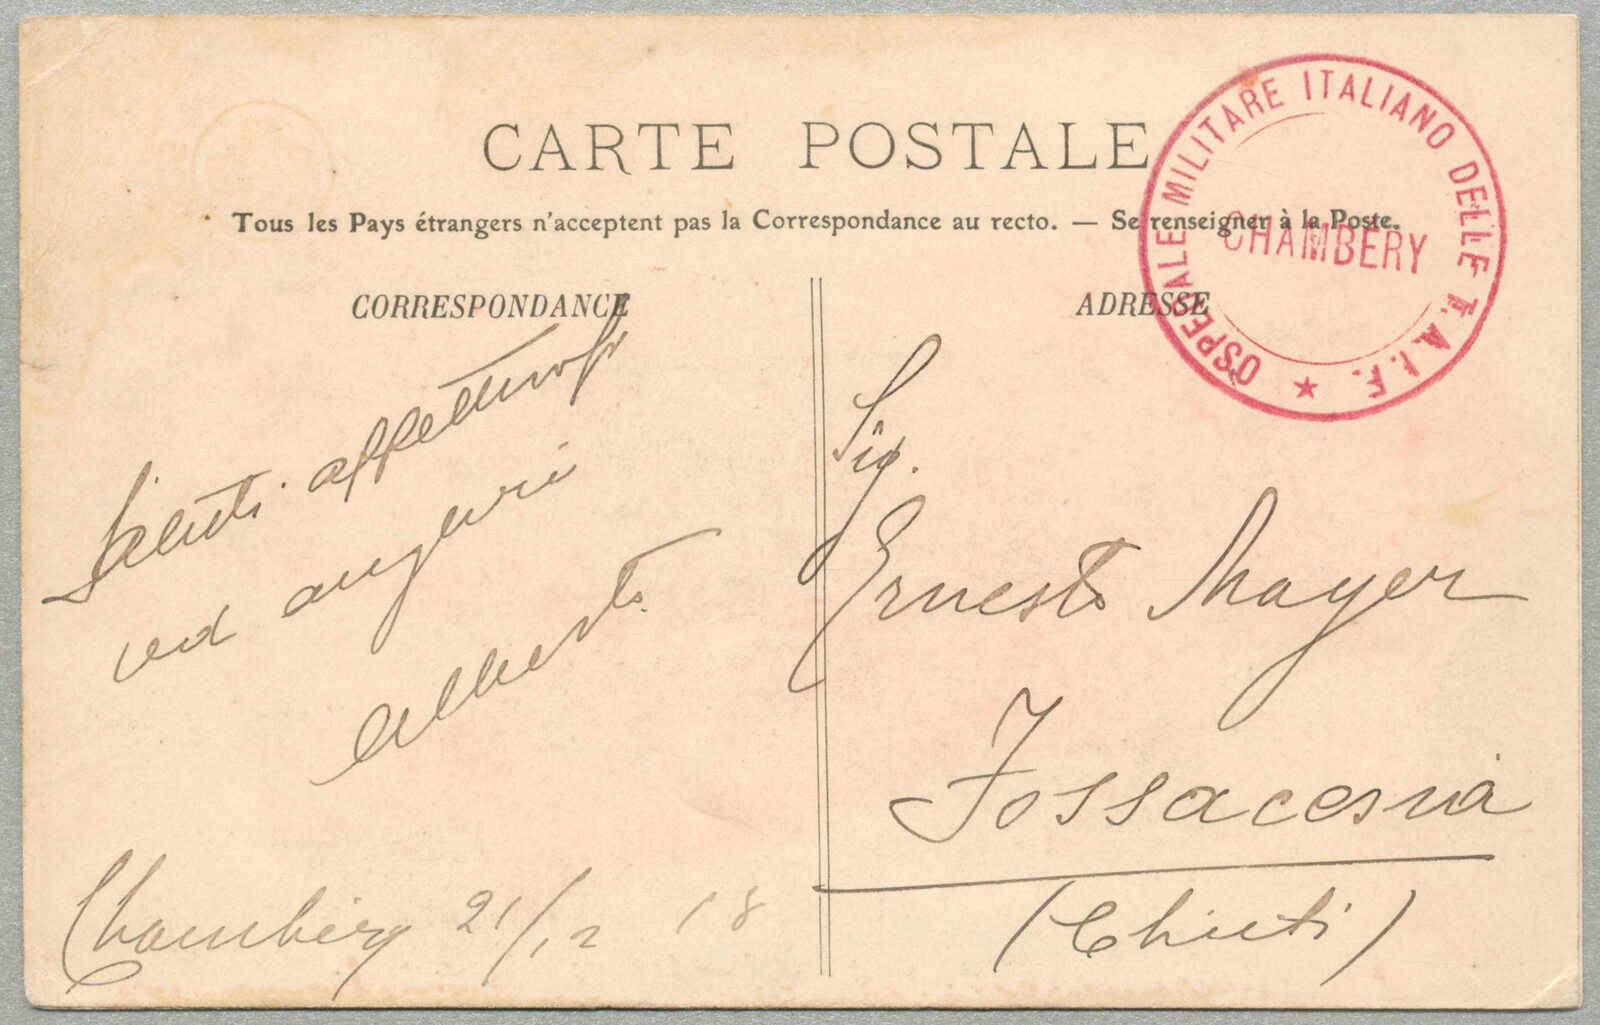 CARTE POSTALE
Tous les Pays étrangers n'acceptent pas la Correspondance au recto. — Se renseigner à la Poste.
OSPEDALE MILITARE ITALIANO DELLE T.A.I.F.
CHAMBERY
CORRESPONDANCE
Saluti affettuosi
ed auguri
Alberto
Chambéry 21/12 18
ADRESSE
Sig.
Ernesto Mayer
Fossacesia
(Chieti)